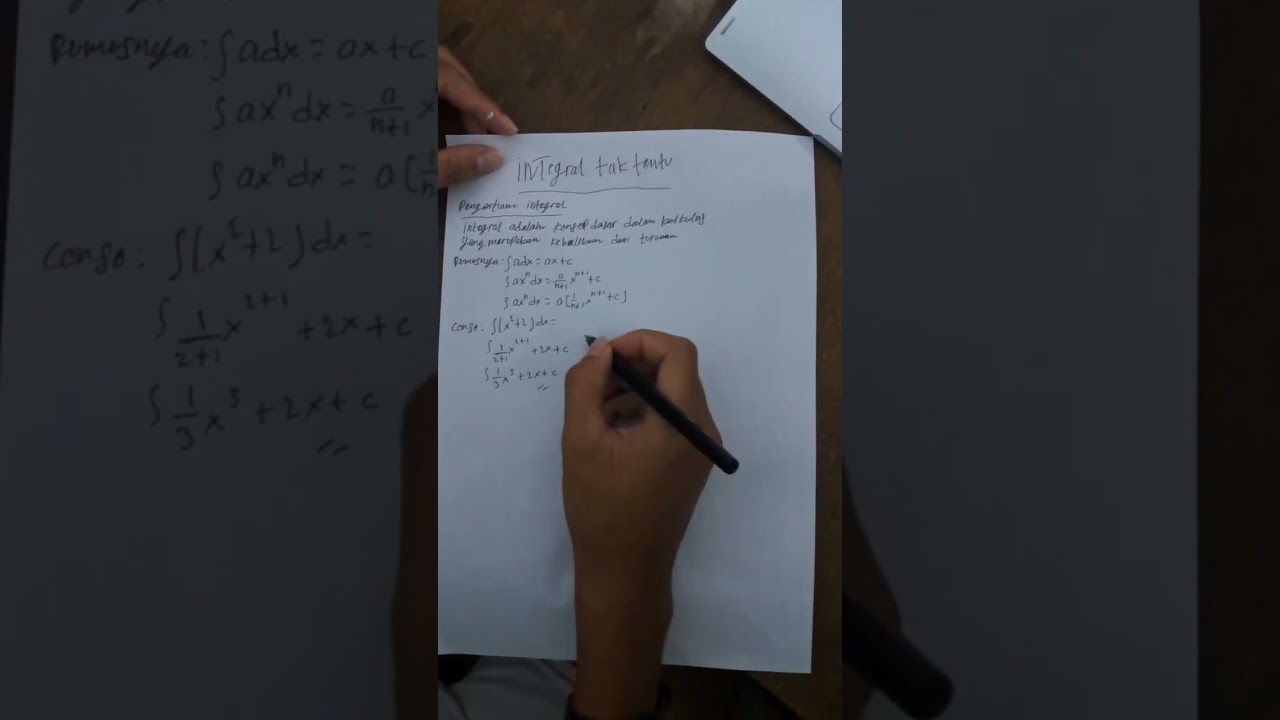 INTegral tak tentu
Pengertian integral
integral adalah konsep dasar dalam kalkulus
yang merupakan kebalikan dari turunan
Rumusnya: ∫adx = ax+c
∫ax^n dx = a/(n+1) x^(n+1) + c
∫ax^n dx = a[1/(n+1) x^(n+1) + c]
Conso: ∫[x^2+2]dx =
∫ 1/(2+1) x^(2+1) + 2x + c
∫ 1/3 x^3 + 2x + c